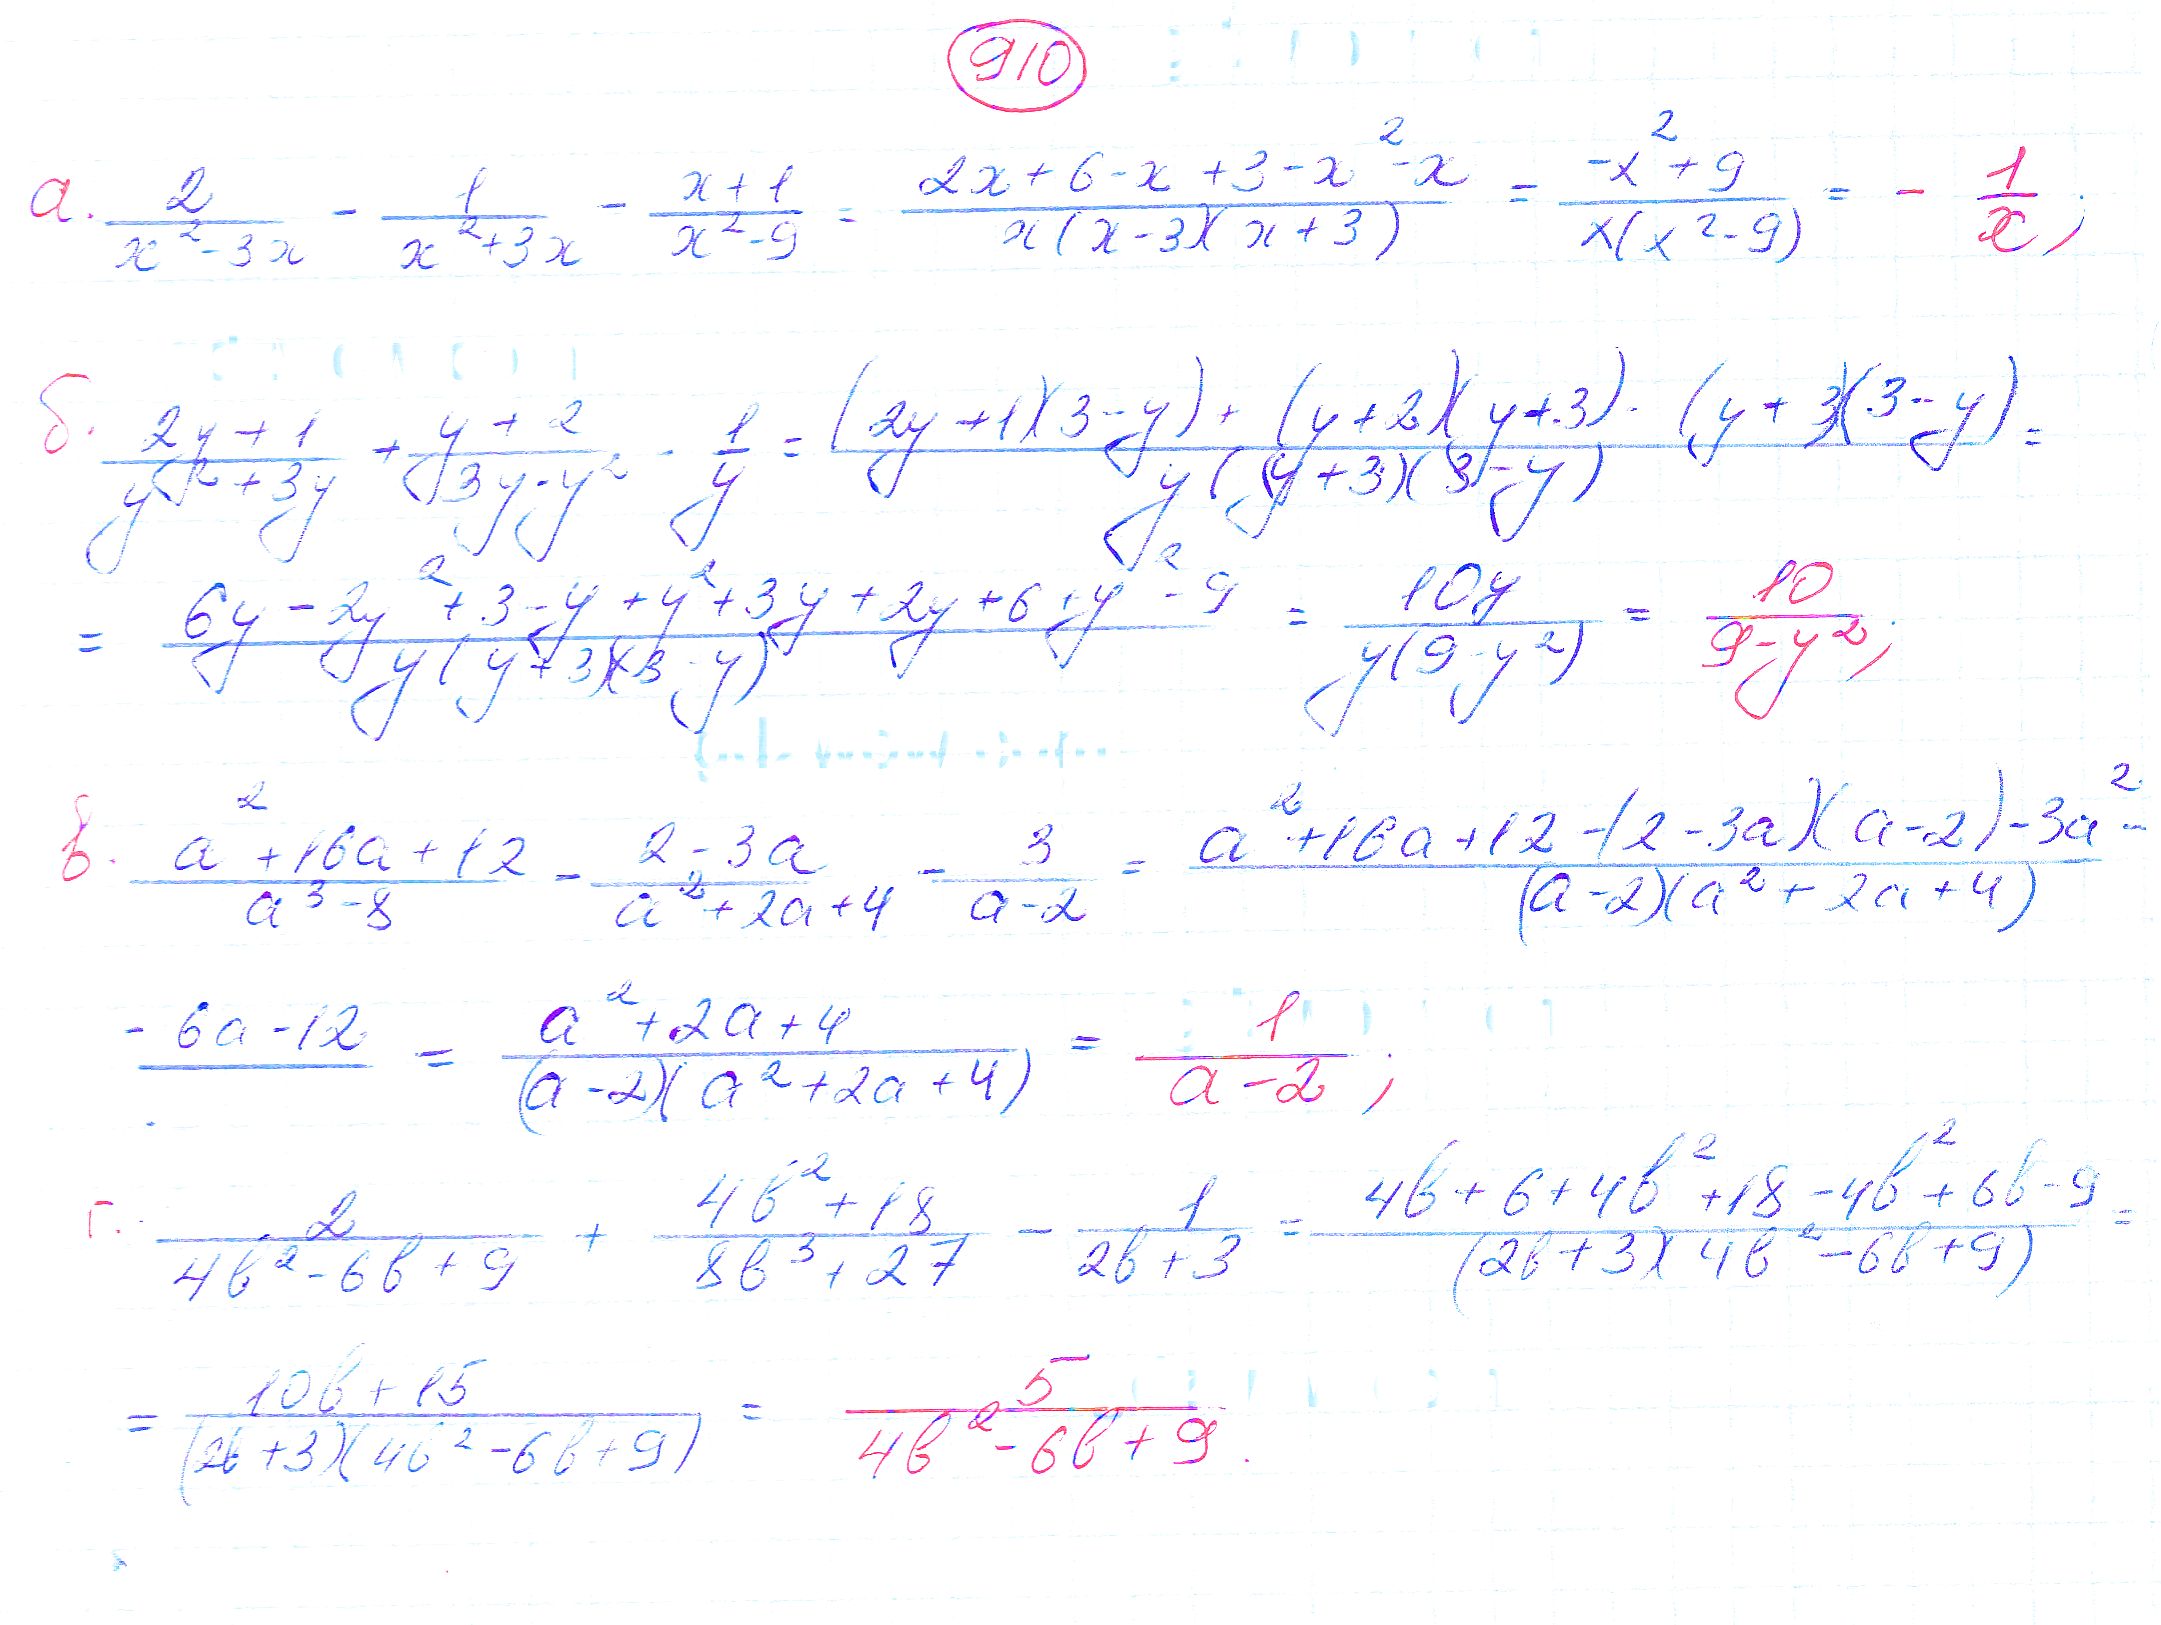 910
а. 2/(x²-3x) - 1/(x²+3x) - (x+1)/(x²-9) = (2x+6-x+3-x²-x)/(x(x-3)(x+3)) = (-x²+9)/(x(x²-9)) = - 1/x;
б. (2y+1)/(y²+3y) + (y+2)/(3y-y²) - 1/y = ((2y+1)(3-y)+(y+2)(y+3)-(y+3)(3-y))/(y(y+3)(3-y)) =
= (6y-2y²+3-y+y²+3y+2y+6+y²-9)/(y(y+3)(3-y)) = 10y/(y(9-y²)) = 10/(9-y²);
в. (a²+16a+12)/(a³-8) - (2-3a)/(a²+2a+4) - 3/(a-2) = (a²+16a+12-(2-3a)(a-2)-3a²-)/((a-2)(a²+2a+4))
-6a-12 = (a²+2a+4)/((a-2)(a²+2a+4)) = 1/(a-2);
г. 2/(4b²-6b+9) + (4b²+18)/(8b³+27) - 1/(2b+3) = (4b+6+4b²+18-4b²+6b-9)/((2b+3)(4b²-6b+9)) =
= (10b+15)/((2b+3)(4b²-6b+9)) = 5/(4b²-6b+9).